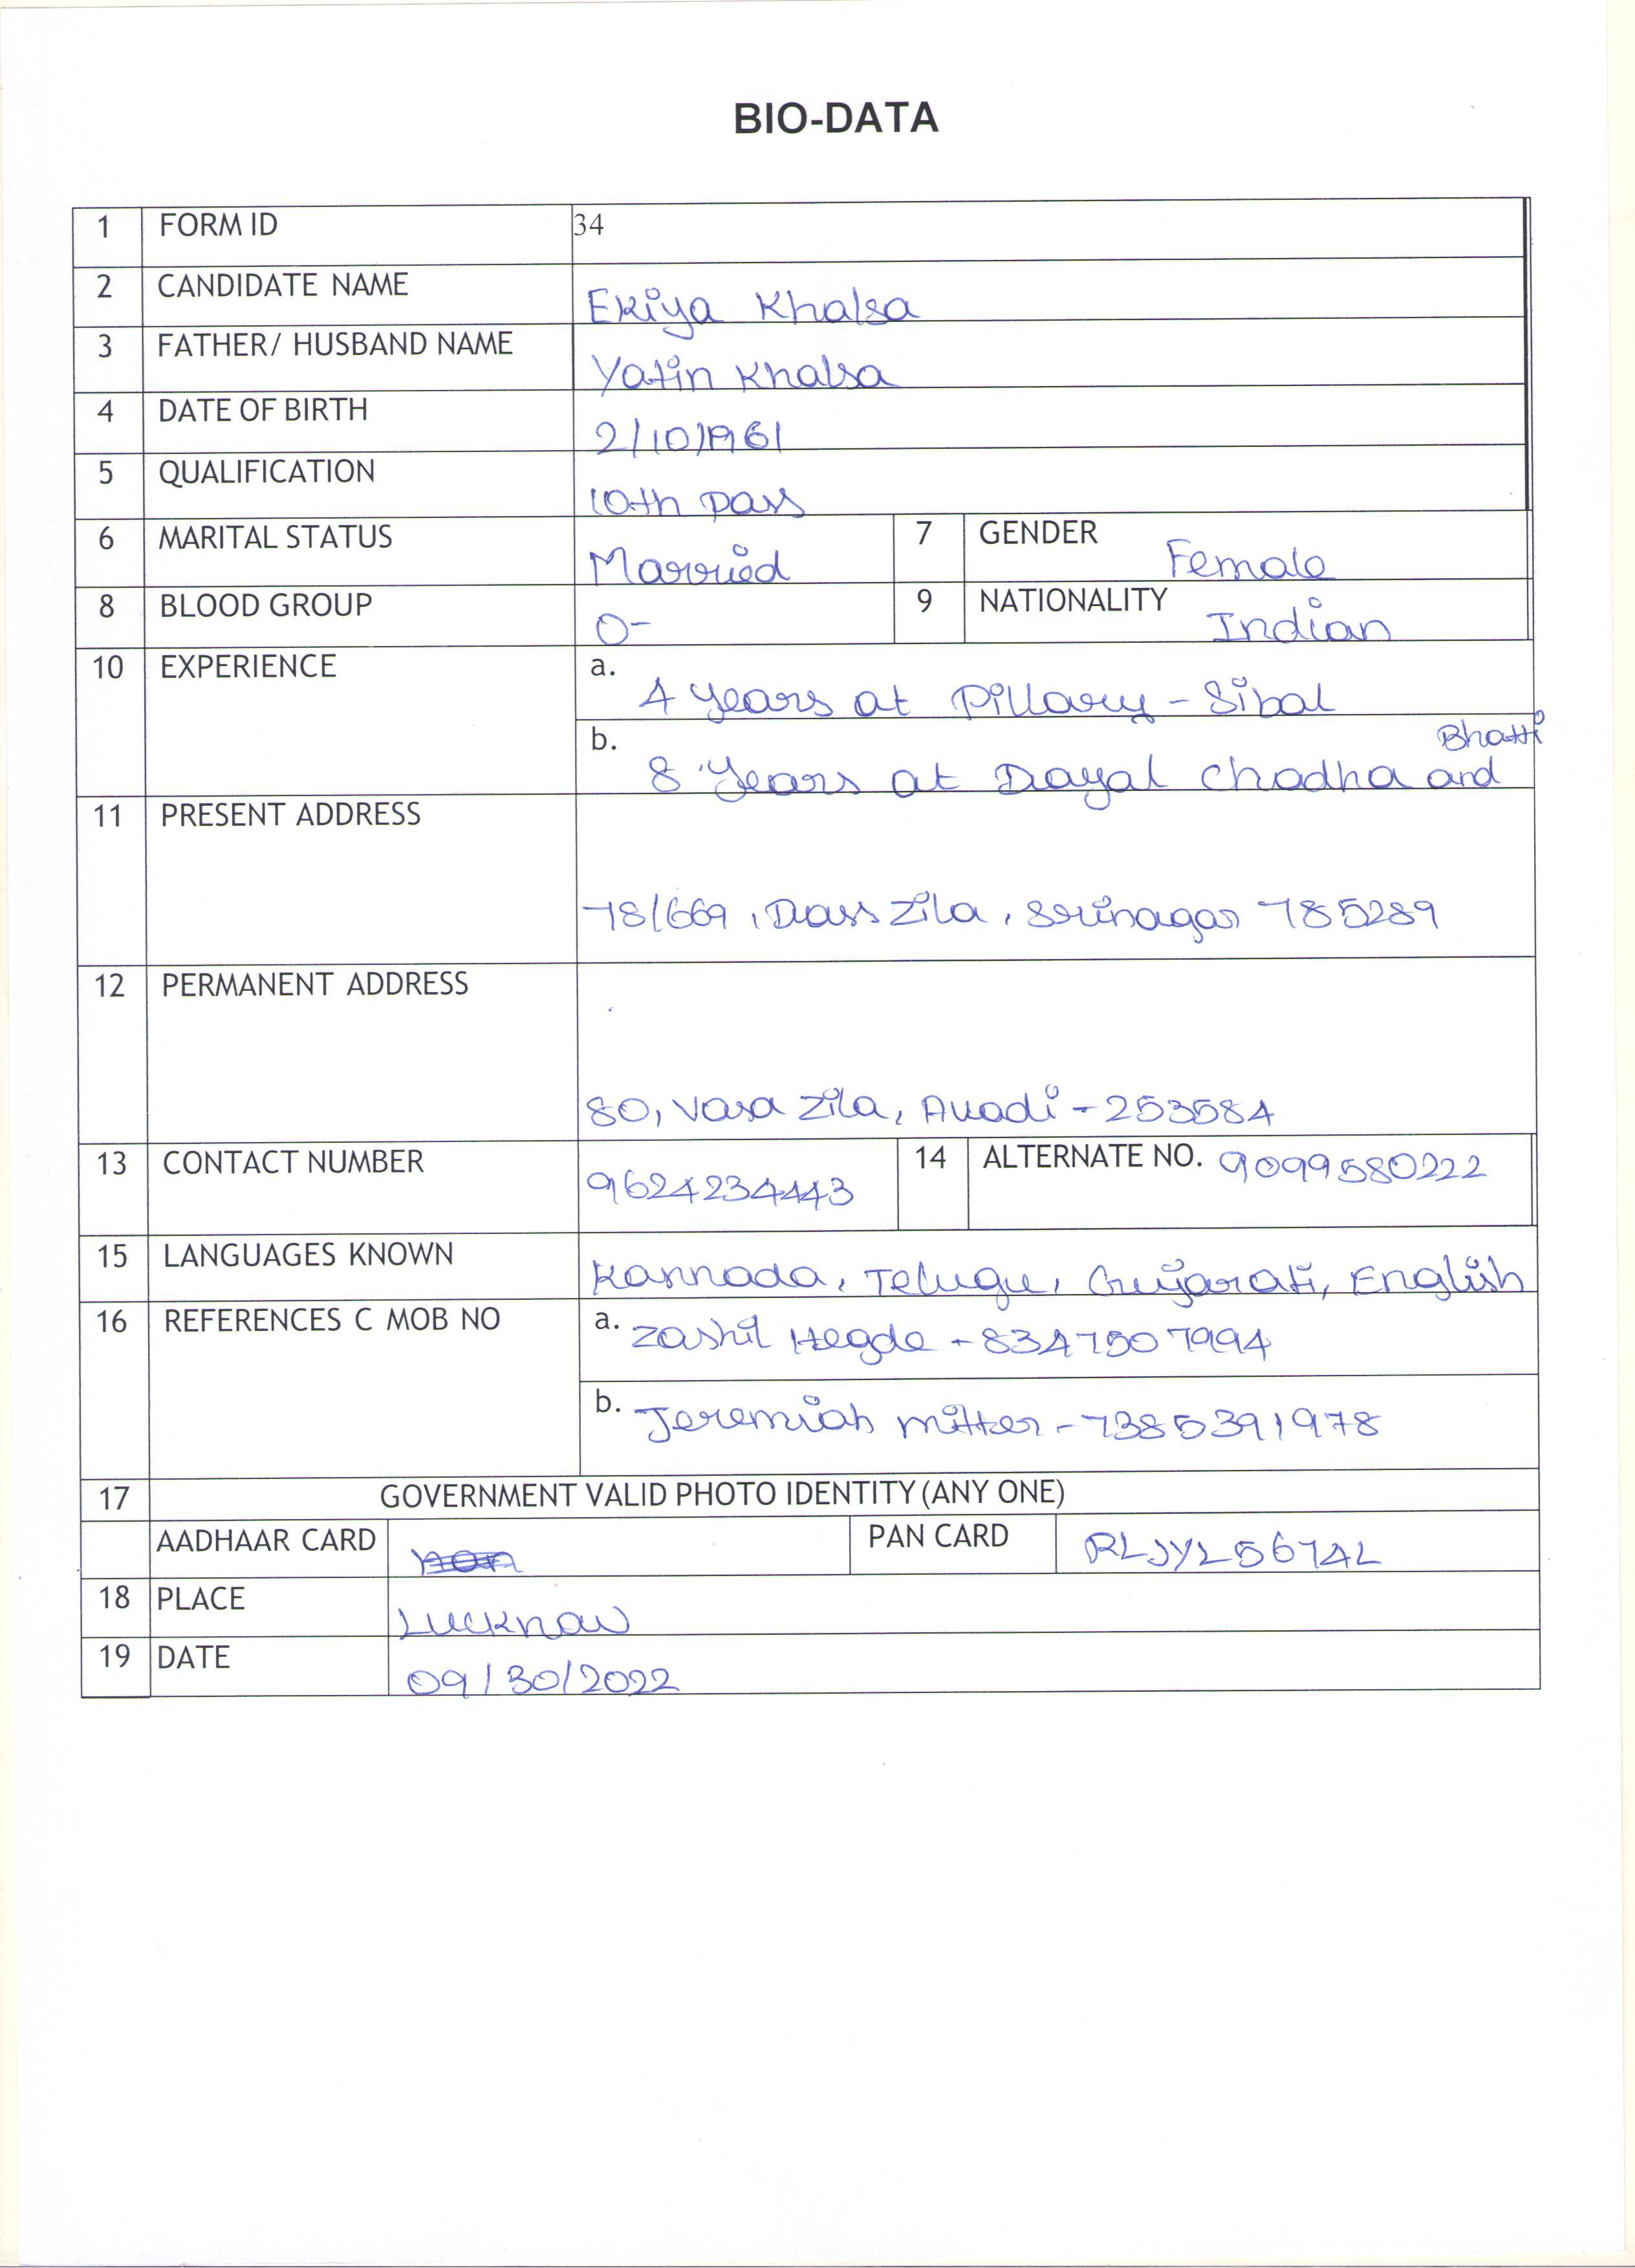 BIO-DATA
1 FORM ID 34
2 CANDIDATE NAME Ekiya Khalsa
3 FATHER/ HUSBAND NAME Yatin Khalsa
4 DATE OF BIRTH 2/10/1961
5 QUALIFICATION 10th pass
6 MARITAL STATUS Married 7 GENDER Female
8 BLOOD GROUP O- 9 NATIONALITY Indian
10 EXPERIENCE a. 4 years at Pillary - Sibal
b. 8 Years at Dayal Chadha and Bhatti
11 PRESENT ADDRESS
78/669, Dass Zila, Srinagar 785289
12 PERMANENT ADDRESS
80, Vasa Zila, Avadi - 253584
13 CONTACT NUMBER 9624234443 14 ALTERNATE NO. 9099580222
15 LANGUAGES KNOWN Kannada, Telugu, Gujarati, English
16 REFERENCES C MOB NO a. Zashil Hegde - 8347507994
b. Jeremiah Mitter - 7385391978
17 GOVERNMENT VALID PHOTO IDENTITY (ANY ONE)
AADHAAR CARD PAN CARD RLJYL5674L
18 PLACE Lucknow
19 DATE 09/30/2022